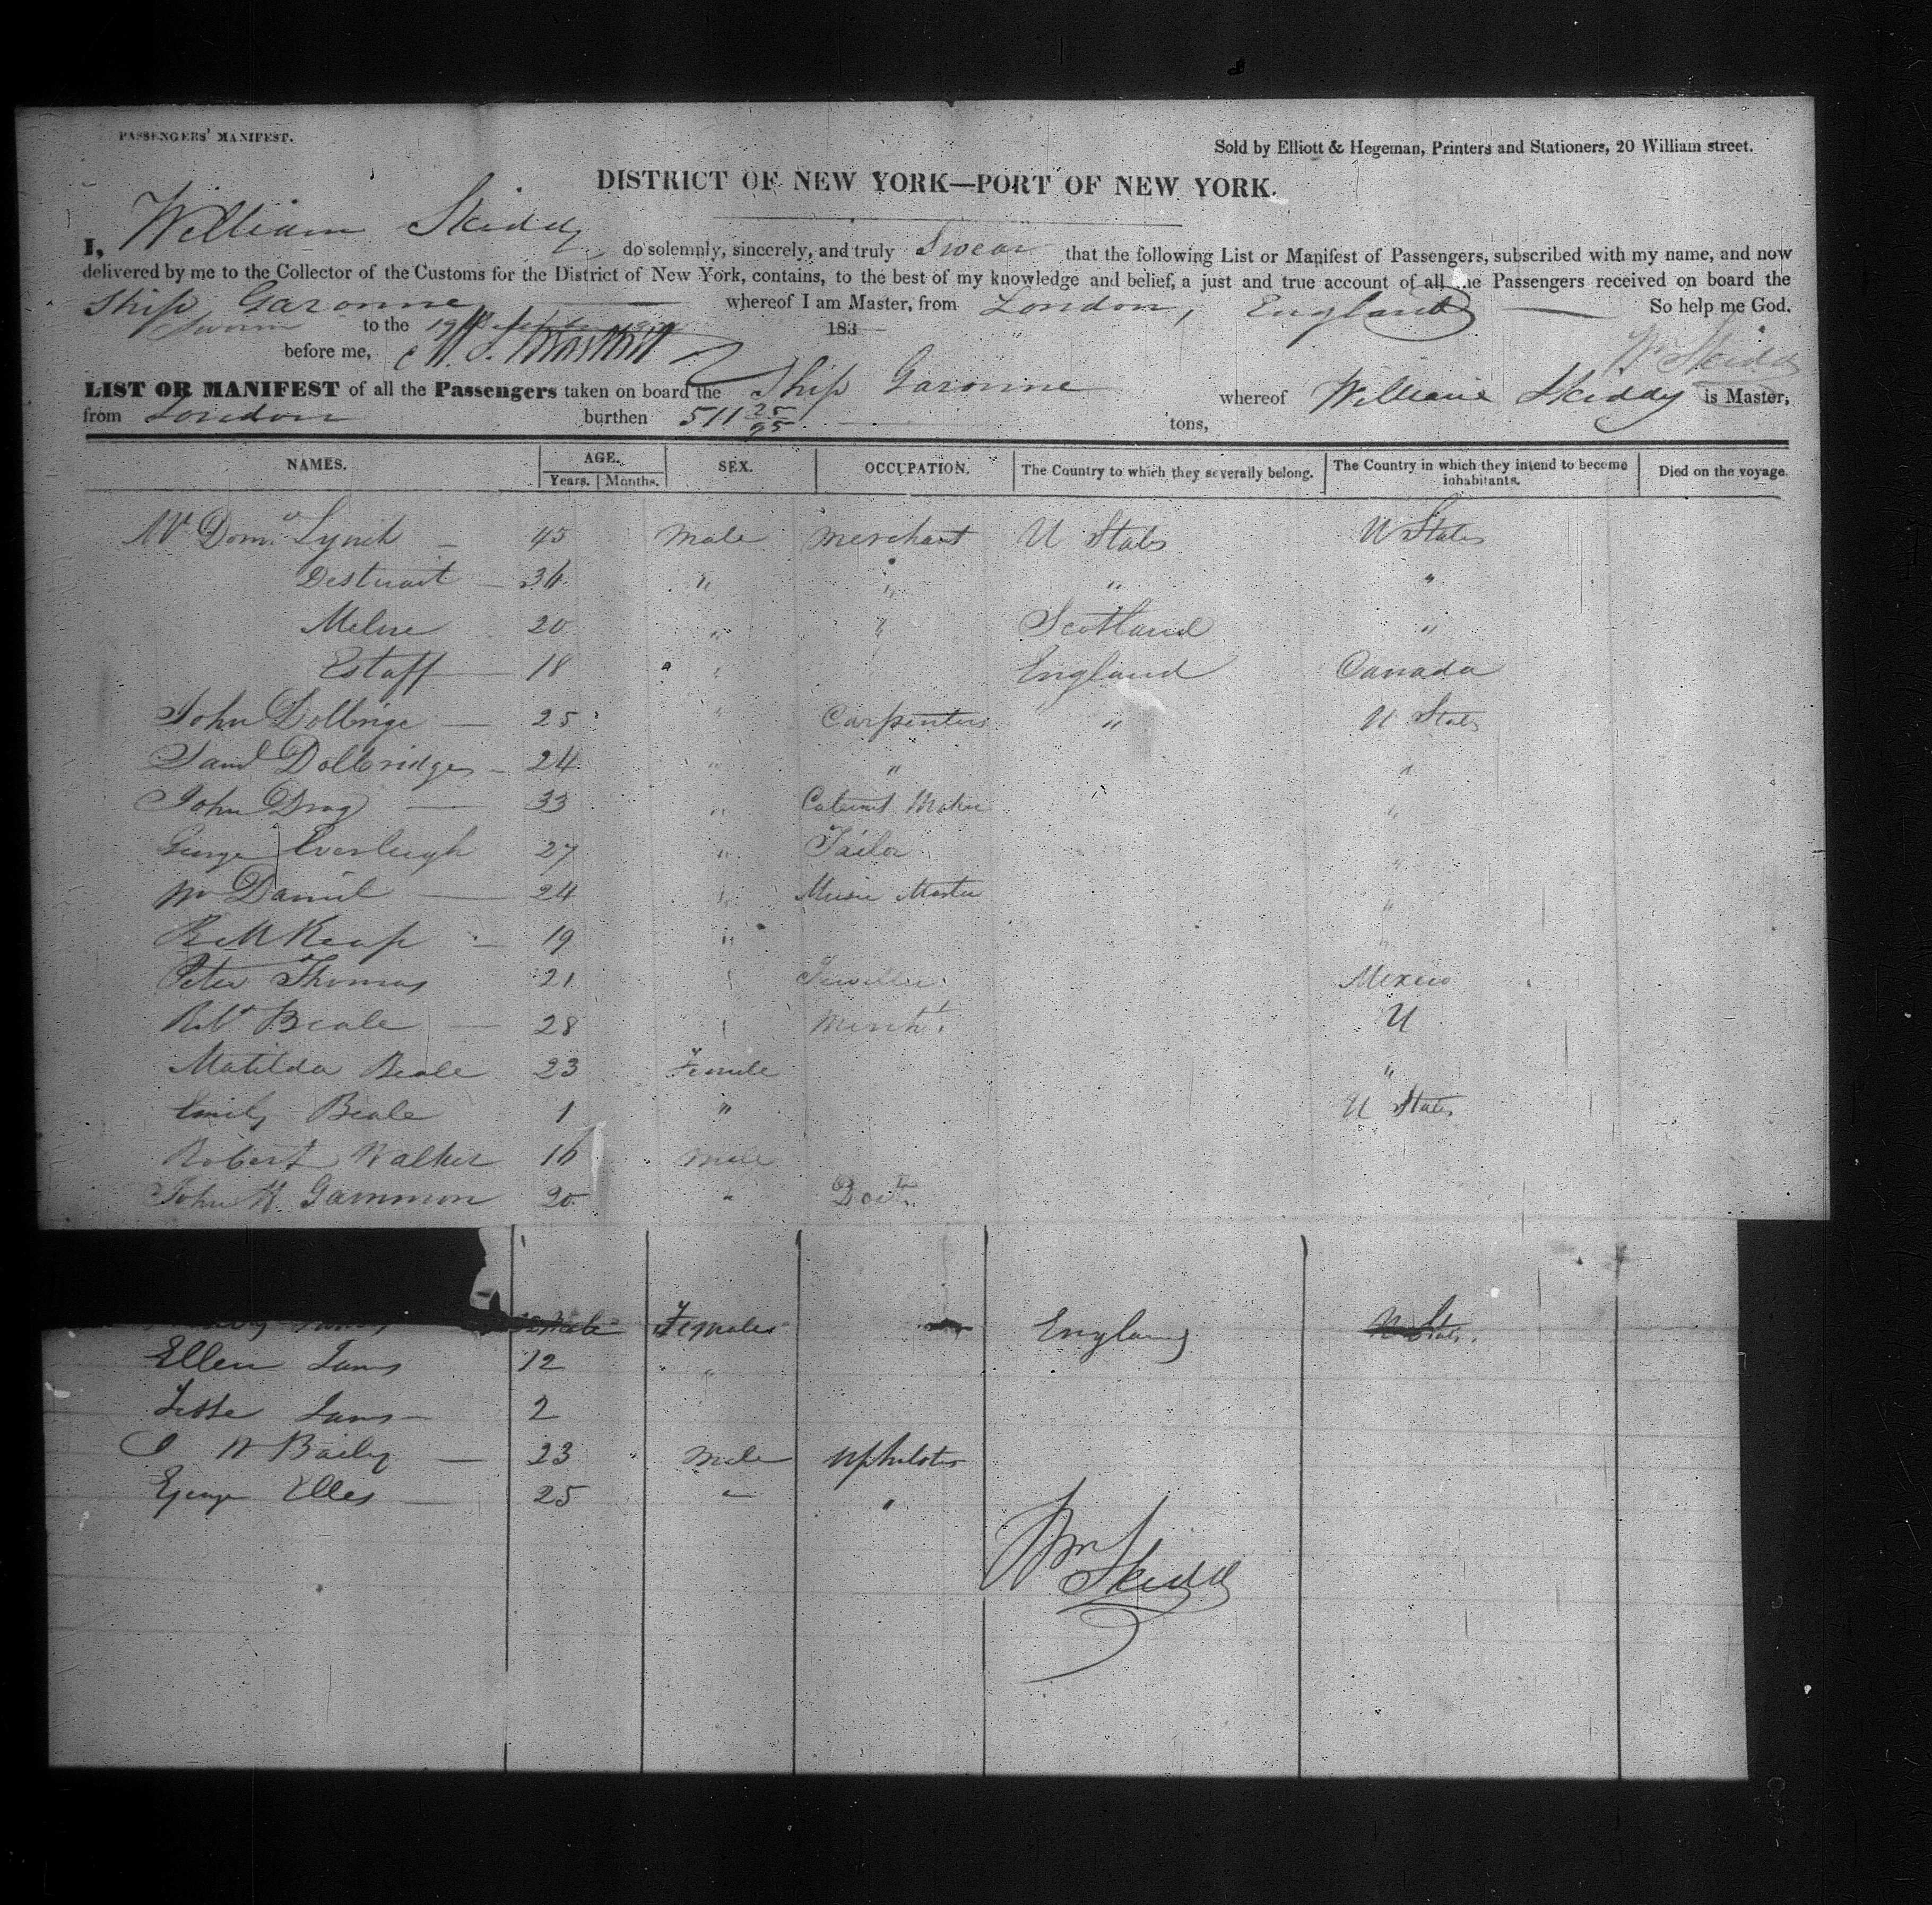 PASSENGERS' MANIFEST.
Sold by Elliott & Hegeman, Printers and Stationers, 20 William street.
DISTRICT OF NEW YORK—PORT OF NEW YORK.
I, William Skiddy do solemnly, sincerely, and truly Swear that the following List or Manifest of Passengers, subscribed with my name, and now
delivered by me to the Collector of the Customs for the District of New York, contains, to the best of my knowledge and belief, a just and true account of all the Passengers received on board the
Ship Garonne whereof I am Master, from London, England So help me God.
Sworn to the 19 183
Wm Skiddy
before me,
LIST OR MANIFEST of all the Passengers taken on board the Ship Garonne whereof William Skiddy is Master,
from London burthen 511 25/95 tons,
NAMES. AGE. SEX. OCCUPATION. The Country to which they severally belong. The Country in which they intend to become inhabitants. Died on the voyage.
Years. Months.
Mr Domk Lynch 45 Male Merchant U States U States
36 " " " "
20 " " Scotland "
Estaff 18 " England Canada
John Dolbrige 25 " Carpenters " U States
Saml Dolbridge 24 " " "
John 33 " Cabinet Maker "
George Everleigh 27 " Tailor "
Wm Daniel 24 " Music Master "
19 " "
Peter Thomas 21 " Jeweller Mexico
Rbt Beale 28 " Mercht U
Matilda Beale 23 Female "
Emily Beale 1 " U States
Robert Walker 16 Male
John H Gammon 20 " Doctr
Females England U States.
Ellen 12 "
2
W Baily 23 Male Upholster
George Elles 25 " "
Wm Skiddy